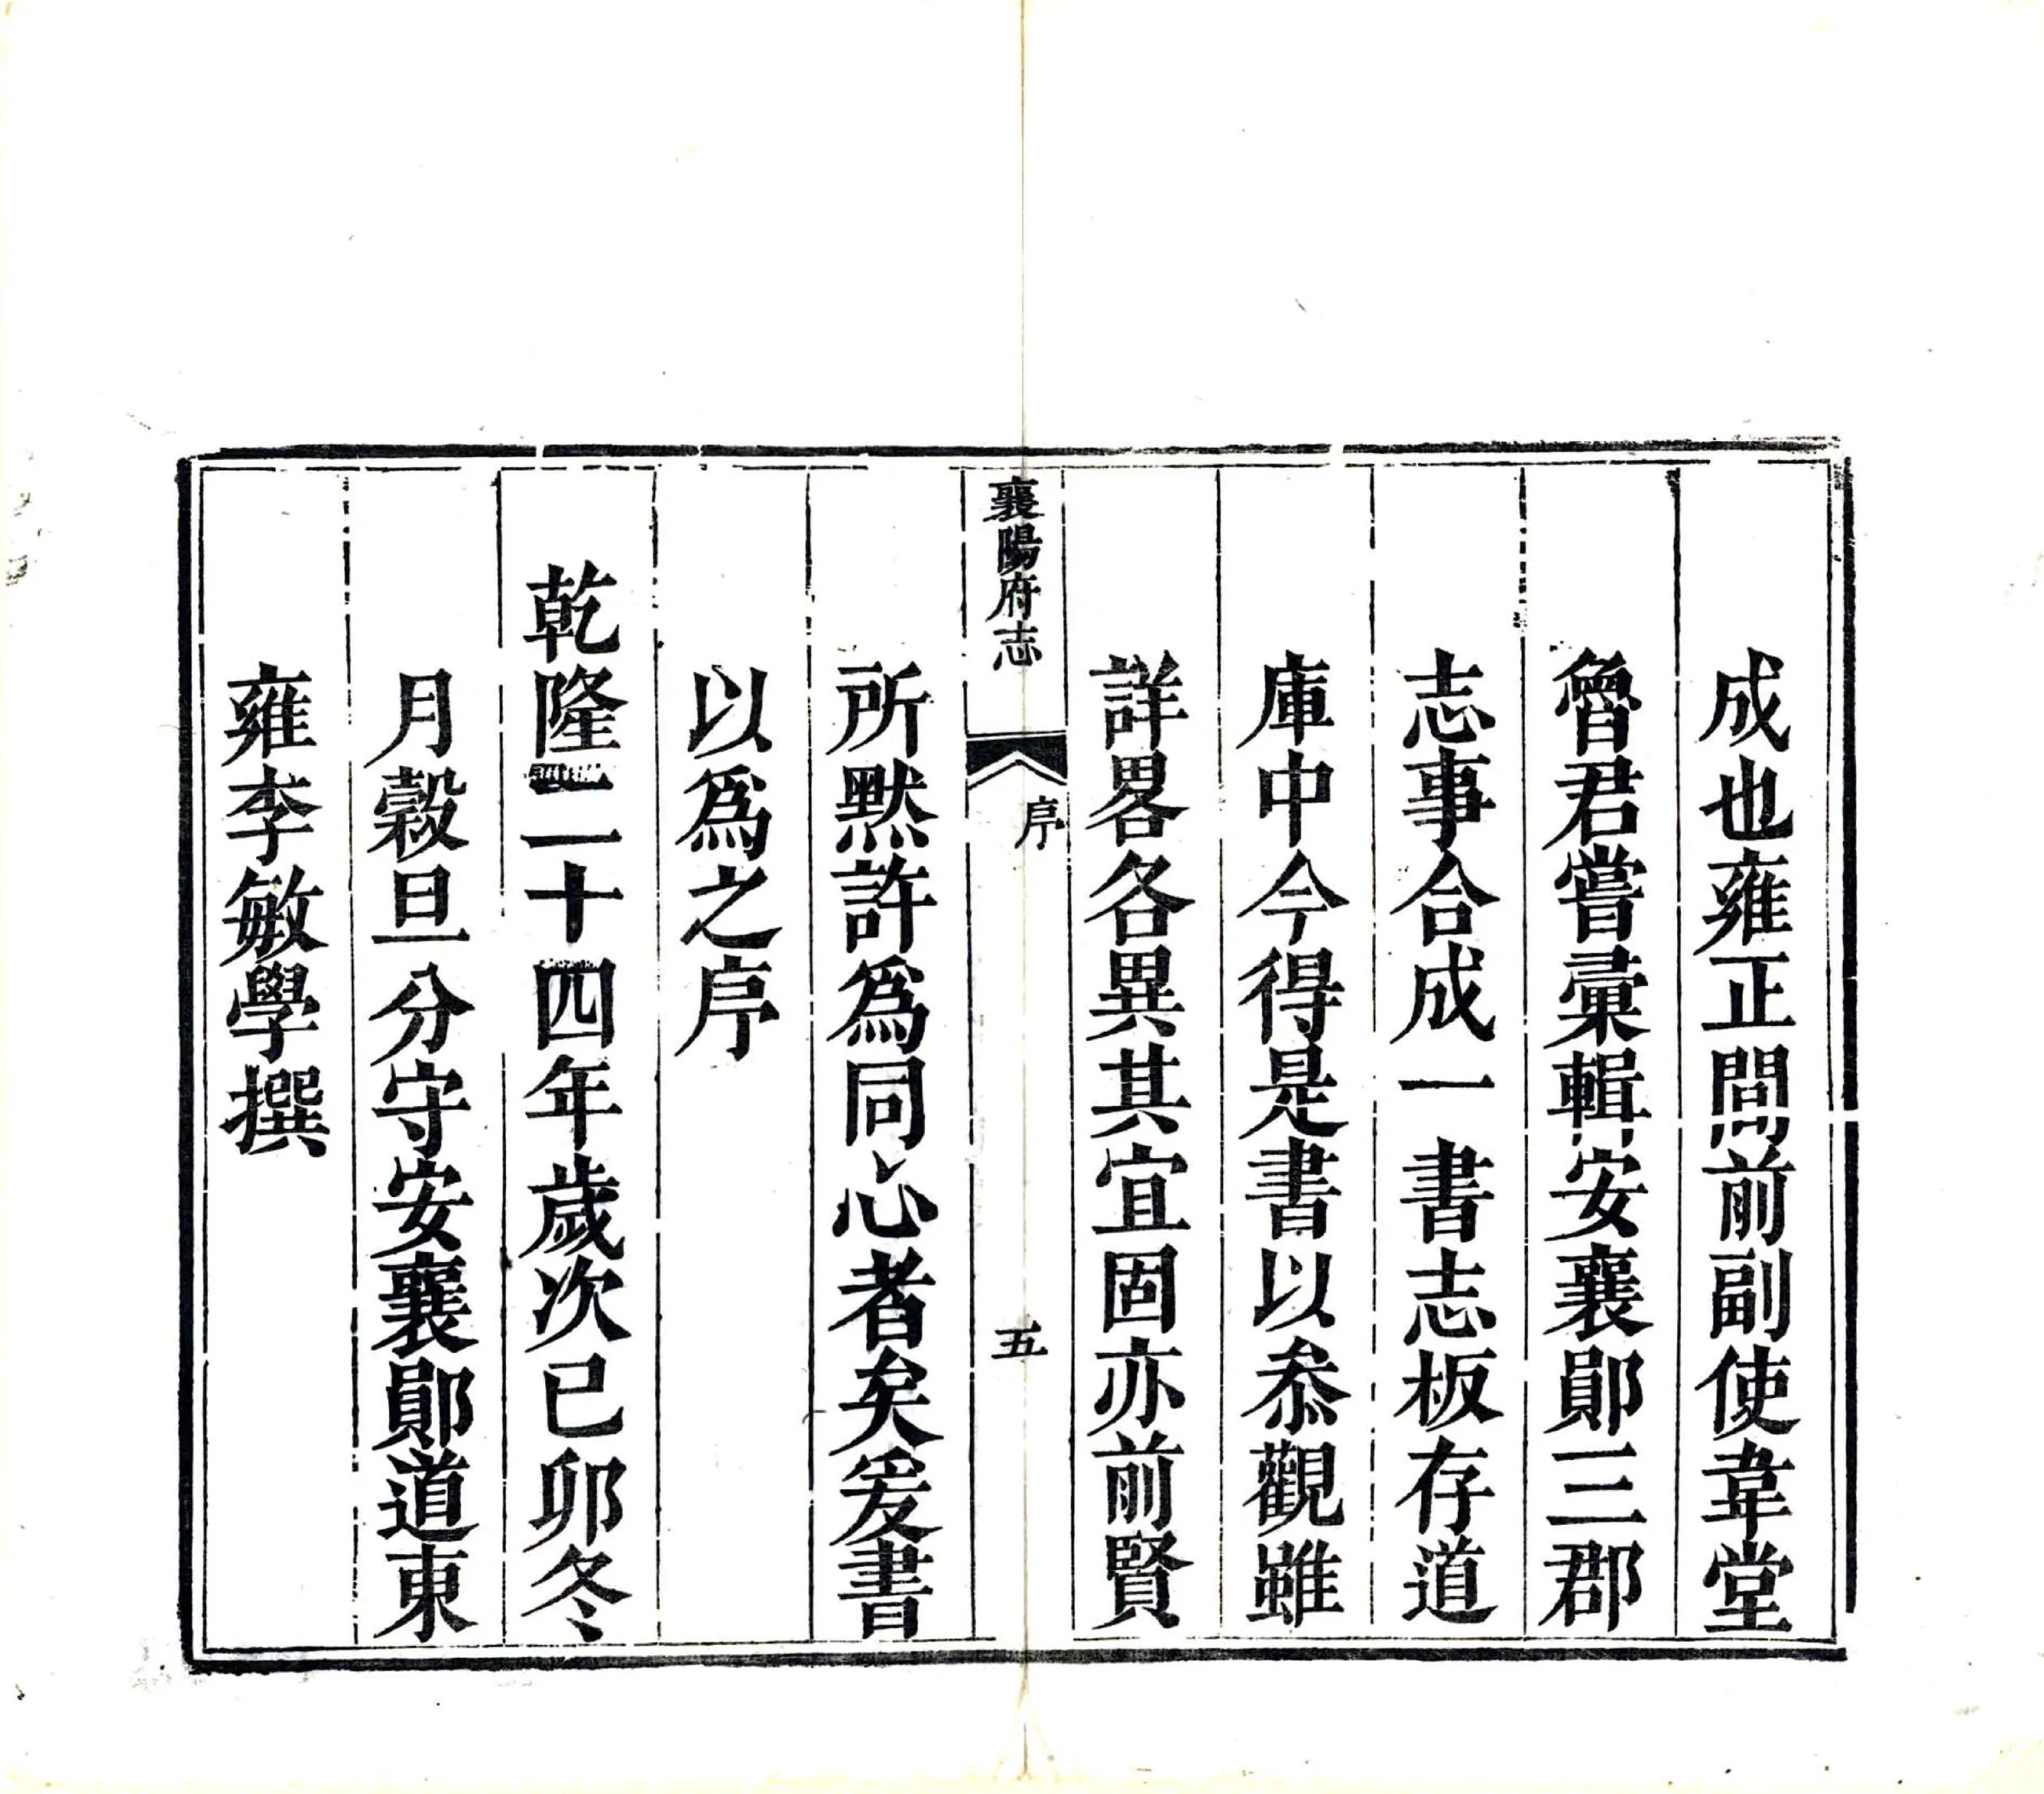 成也雍正間前副使韋堂
魯君嘗彙輯安襄鄖三郡
志事合成一書志板存道
庫中今得是書以叅觀雖
詳畧各異其宜固亦前賢
襄陽府志
序
五
所默許爲同心者矣爰書
以爲之序
乾隆二十四年歲次己卯冬
月穀旦分守安襄鄖道東
雍李敏學撰